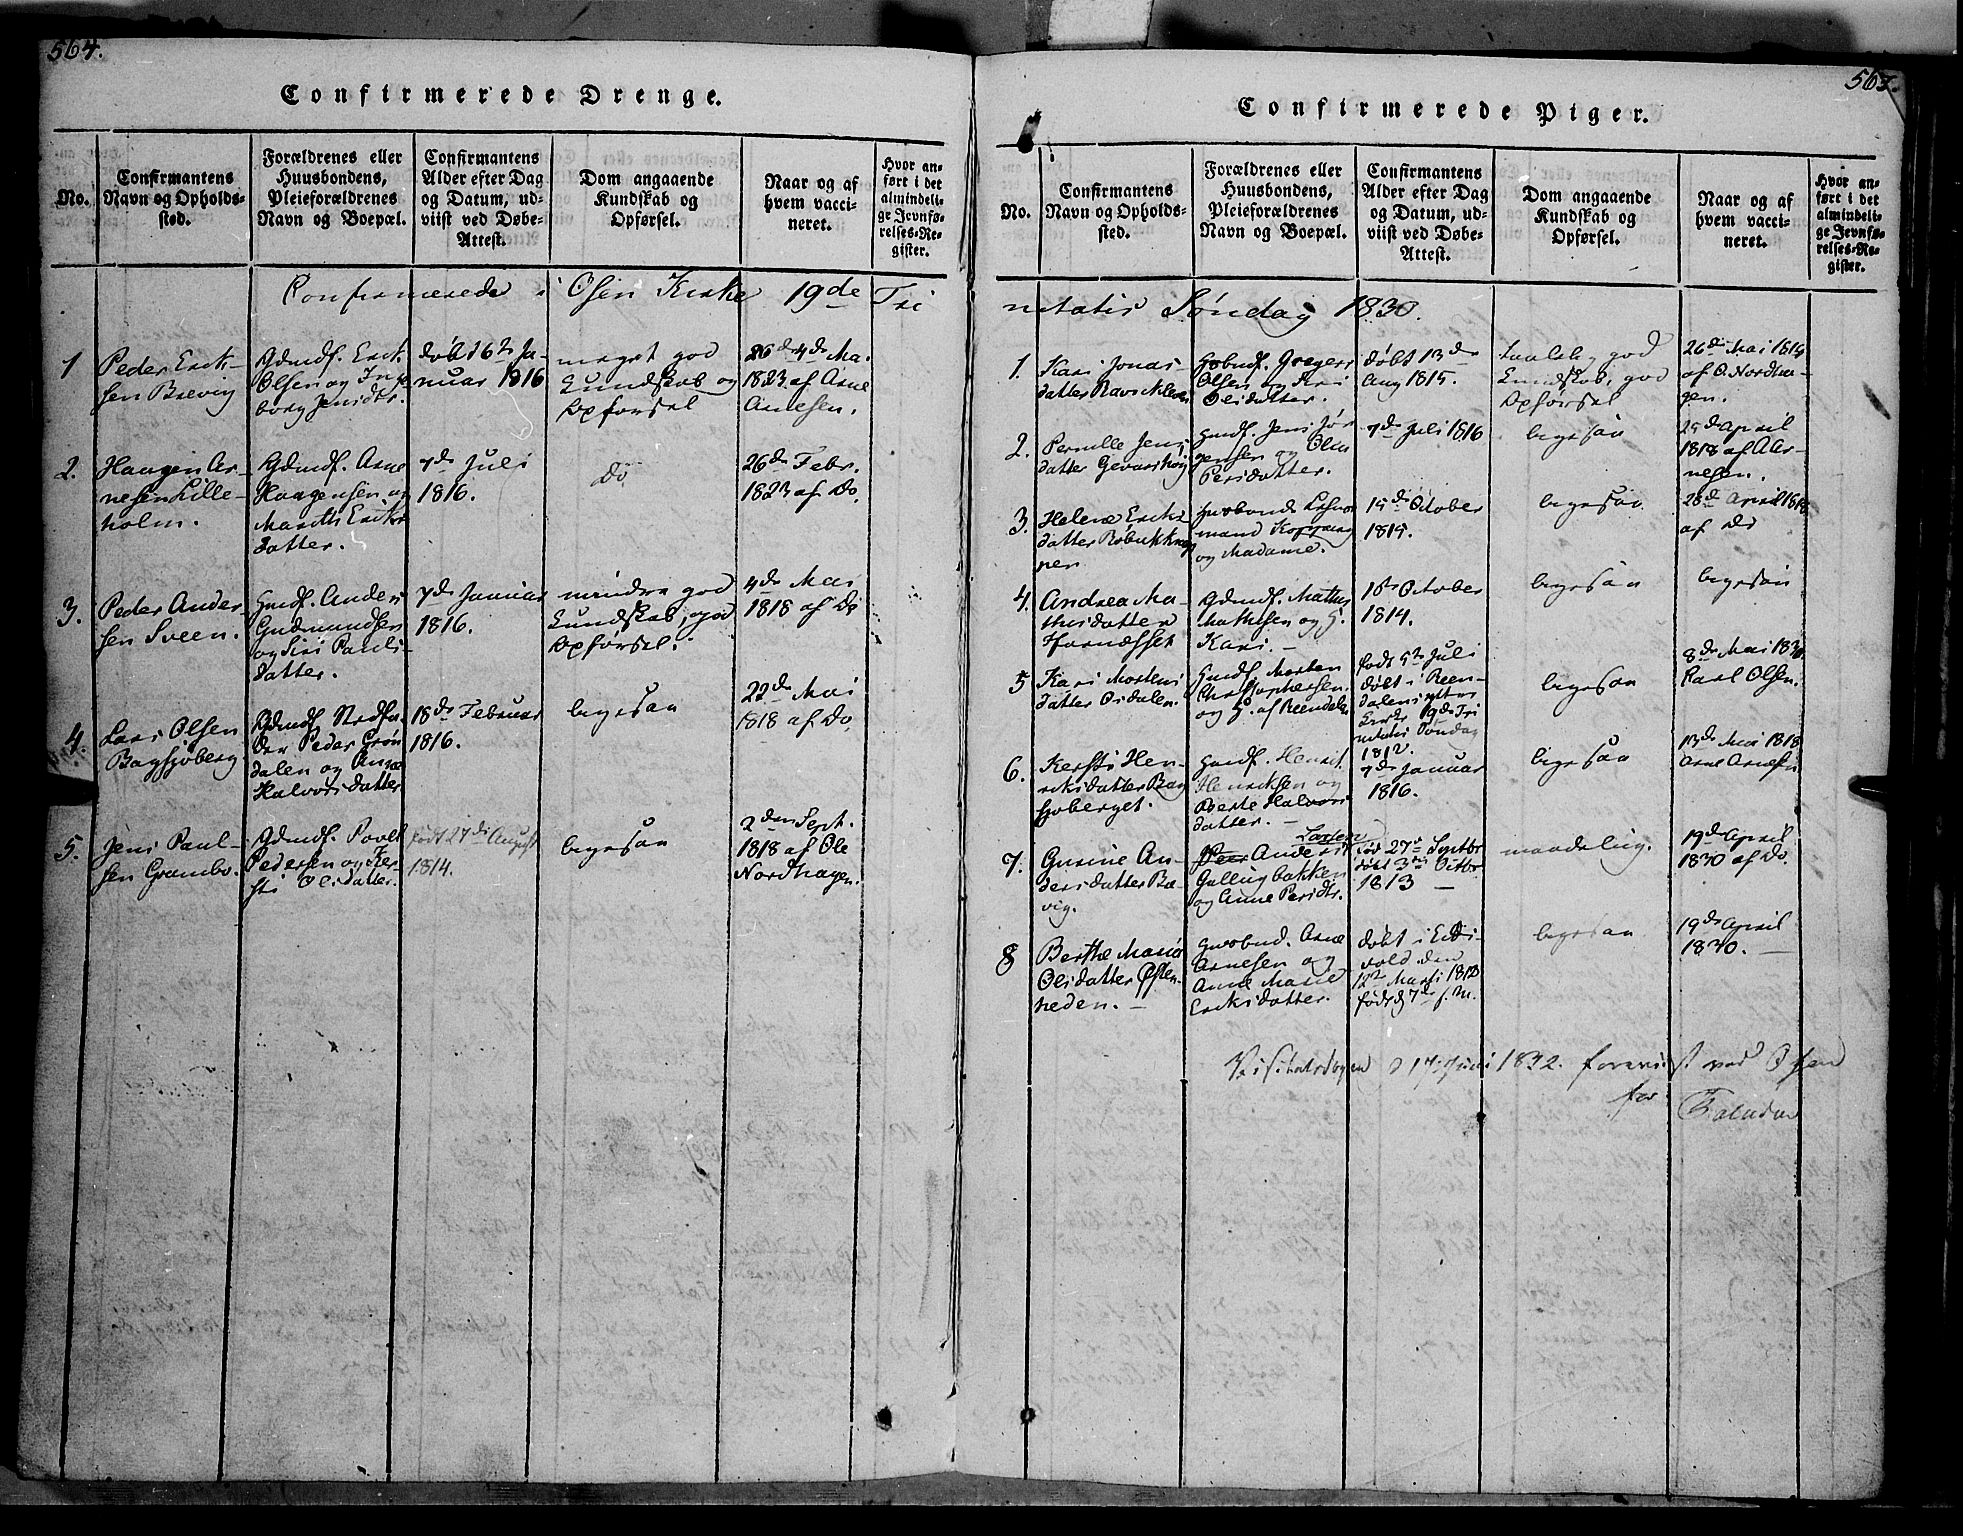 564.
Confirmerede Drenge.
No.
Confirmantens
Navn og Opholds-
sted.
Forældrenes eller
Huusbondens,
Pleieforældrenes
Navn og Boepæl.
Confirmantens
Alder efter Dag
og Datum, ud-
viist ved Døbe-
Attest.
Dom angaaende
Kundskab og
Opførsel.
Naar og af
hvem vacci-
neret.
Hvor an-
ført i det
almindeli-
ge Jevnfø-
relses-Re-
gister.
Confirmerede i Osen Kirke 19de Tri
1
Peder Erik-
sen Brevig
Gdmd. Erik
Olsen og Inge
borg Jensdtr.
døbt 16de Ja-
nuar 1816
meget god
Kundskab og
Opførsel
26de Ma.
1823 af Arne
Arnesen.
2.
Haagen Ar-
nesen Lille-
holm.
Gdmd. Arne
Haagensen og
Marith Eriks
datter.
7de Juli
1816.
do
26de Febr.
1823 af Do.
3.
Peder Ander-
sen Sveen.
Gmd. Anders
Gudmundsen
og Siri Pauls-
datter.
7de Januar
1816.
mindre god
Kundskab, god
Opførsel.
4de Mai
1818 af Do
4.
Lars Olsen
Bagsjøberg
Gdmd.
Peder Grøn
dalen og Anne
Halvorsdatter
18de Februar
1816.
ligesaa
22de Mai
1818 af Do.
5.
Jens Paul-
sen Grambo.
Gdmd. Povel
Pedersen og Ker-
sti Olsdatter.
født 27de August
1814.
ligesaa
2den Sept.
1818 af Ole
Nordhagen.
565.
Confirmerede Piger.
No.
Confirmantens
Navn og Opholds-
sted.
Forældrenes eller
Huusbondens,
Pleieforældrenes
Navn og Boepæl.
Confirmantens
Alder efter Dag
og Datum, ud-
viist ved Døbe-
Attest.
Dom angaaende
Kundskab og
Opførsel.
Naar og af
hvem vacci-
neret.
Hvor an-
ført i det
almindeli-
ge Jevnfø-
relses-Re-
gister.
nitatis Søndag 1830.
1.
Kari Jonas-
datter Ravnkleven
Gregers
Olsen og Siri
Olsdatter.
døbt 13de
Aug 1815.
taalelig god
Kundskab, god
Opførsel
26de Mai 1819
af O. Nordha-
gen.
2.
Pernille Jens
datter Gevarshøy
Gmd. Jens Jør
gensen og Olia
Persdatter.
7de Juli 1816
ligesaa
25de April
1818 af A. Ar-
nesen.
3.
Helene Eriks
datter
Husbonde Lehns
mand Koppang
og Madame.
15de October
1815.
ligesaa
28de April 1818
af Do
4.
Andrea Ma-
thisdatter
Hornæsset
Gdmd. Mathis
Mathisen og H.
Kari. –
1ste October
1814.
ligesaa
ligesaa
5
Kari Mortens
datter Osdalen.
Gmd. Morten
Christophersen
og H. af Reendalen
født 5te Juli
døbt i Reen-
dalens ytter
Kirke 19de Tri
nitatis Søndag
1812.
ligesaa
8de Mai 1830
Karl Olsen.
6.
Kersti Hen-
riksdatter Bag
sjøberget.
Gmd. Henrik
Henriksen og
Berte Halvors
datter. –
7de Januar
1816.
ligesaa
13de Mai 1818
Arne Arnesen
7.
Gunine An-
dersdatter Bæ-
vig.
Larsen
Anders
Gullingbakken
og Anne Persdtr.
født 27de Septbr
døbt 3die Octbr
1813 –
maadelig.
19de April
1830 af Do.
8
Berthe Maria
Olsdatter Østen-
heden. –
Husbnd. Arne
Arnesen og
Anne Marie
Eriksdatter.
døbt i Eids-
vold den
12te Marts 1812
født d 7de s. M.
ligesaa
19de April
1830. –
Visitatsbogen d 17 Juni 1832. forevist ved Osen
for